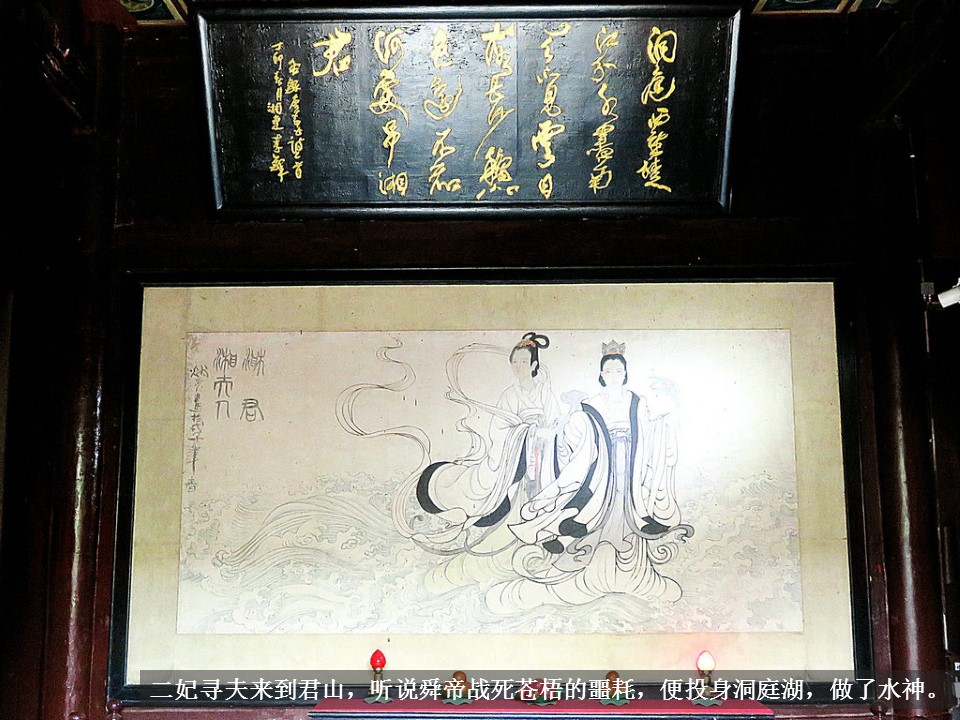 洞庭西望楚
江分水盡南
天不見雲日
落長沙秋
色遠不知
何處吊湘
君
丁卯春月李鐸
湘君
湘夫人
二妃寻夫来到君山，听说舜帝战死苍梧的噩耗，便投身洞庭湖，做了水神。